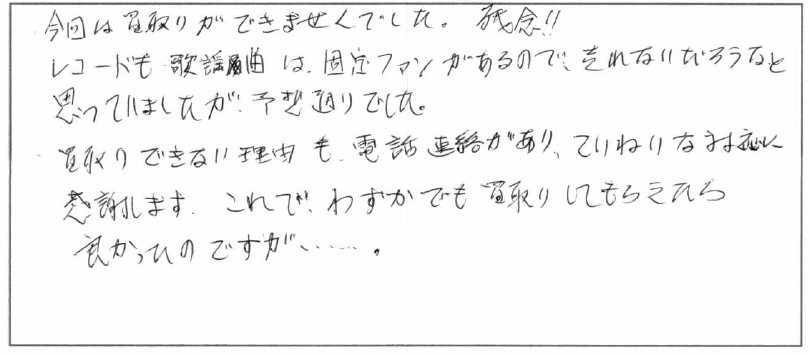 今回は買取りができませんでした。残念!!
レコードも歌謡曲は、固定ファンがあるので、売れないだろうなと
思っていましたが、予想通りでした。
買取りできない理由も、電話連絡があり、ていねいな対応に
感謝します。これで、わずかでも買取りしてもらえたら
良かったのですが……。